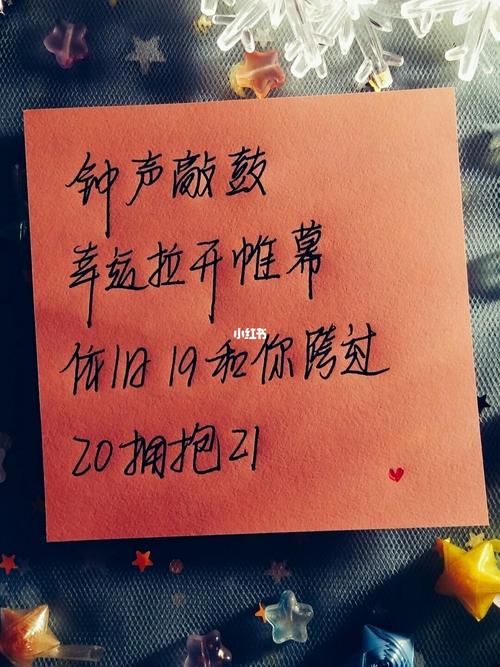 钟声敲鼓
幸运拉开帷幕
小红书
依旧19和你跨过
20拥抱21